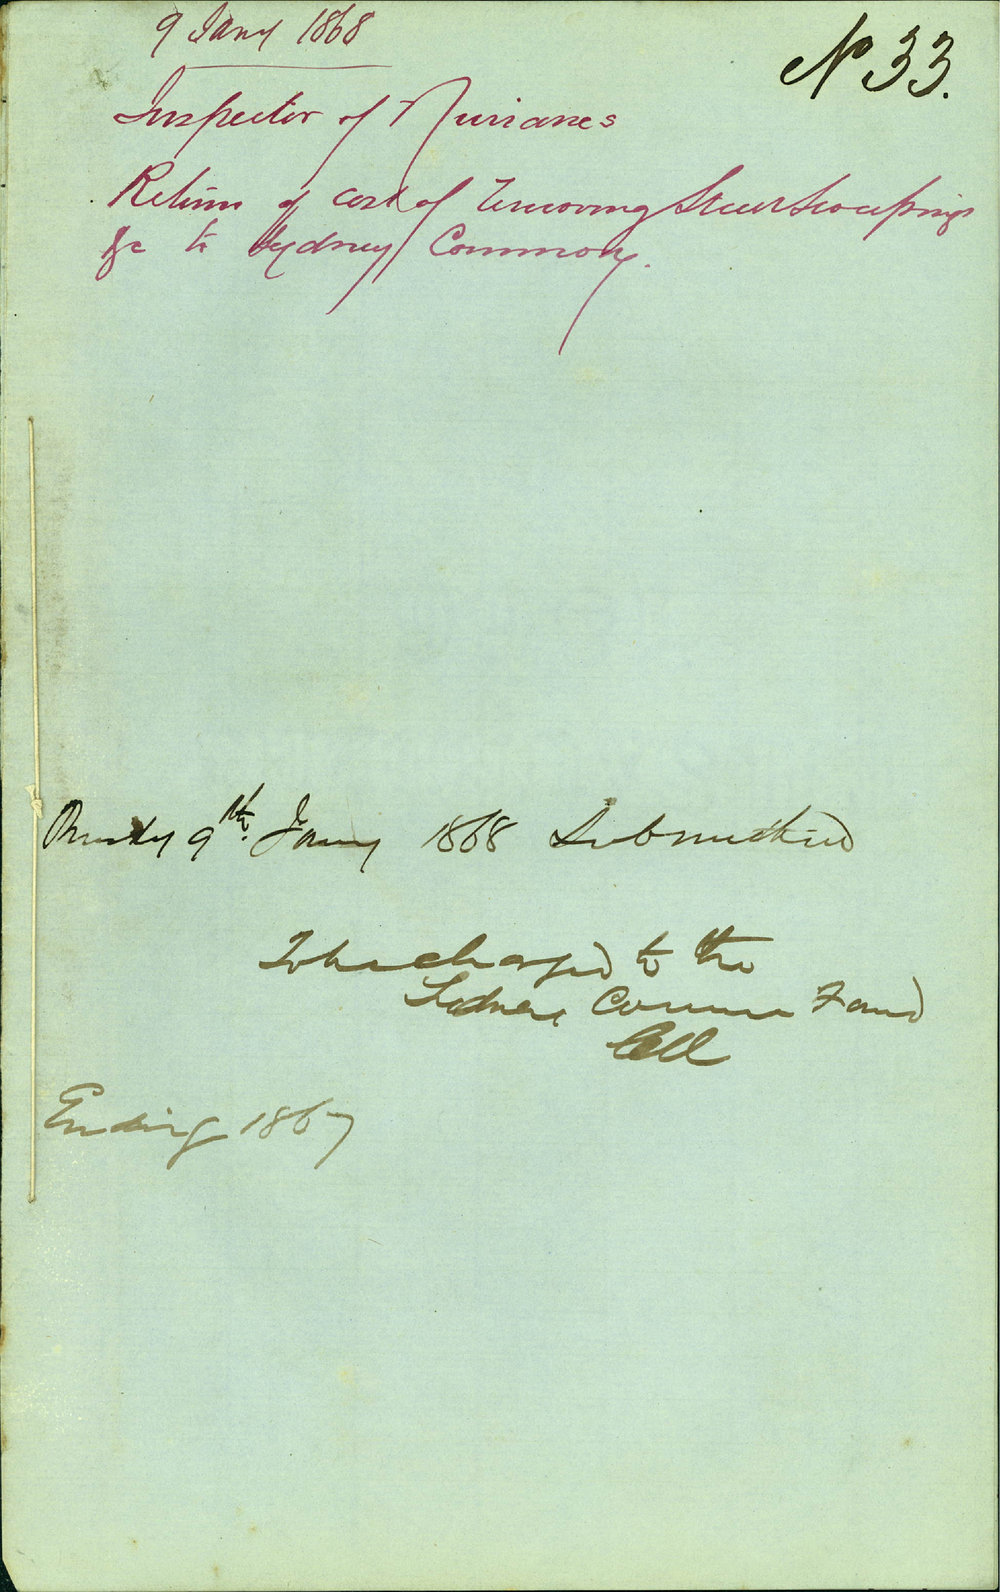 9 Jany 1868
No 33.
Inspector of Nuisances
Return of cost of removing Street Sweepings
&c to Sydney Common.
9th. Jany 1868 Submitted
To be charged to the
Sydney Common Fund
Ending 1867